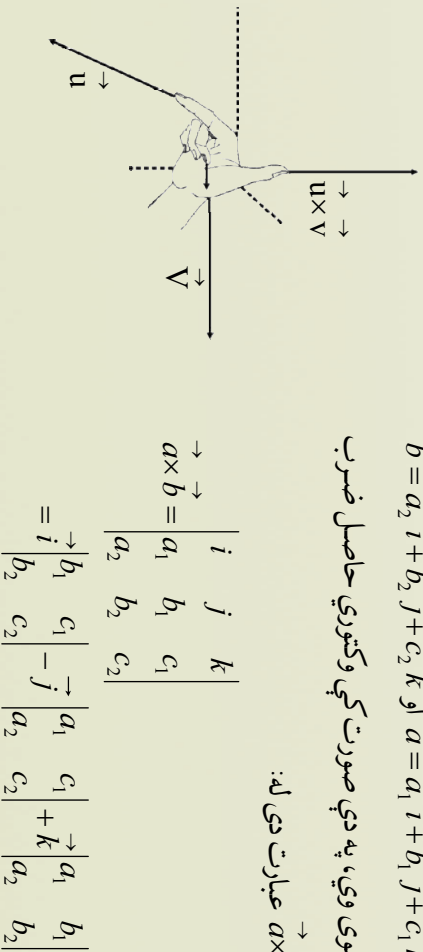 b = a₂ i + b₂ j + c₂ k او a = a₁ i + b₁ j + c₁
وی وي، په دې صورت کې وکتوري حاصل ضرب
a× عبارت دی له:
a × b = | i j k |
| a₁ b₁ c₁ |
| a₂ b₂ c₂ |
= i | b₁ c₁ | − j | a₁ c₁ | + k | a₁ b₁ |
| b₂ c₂ | | a₂ c₂ | | a₂ b₂ |
u × v
V
u